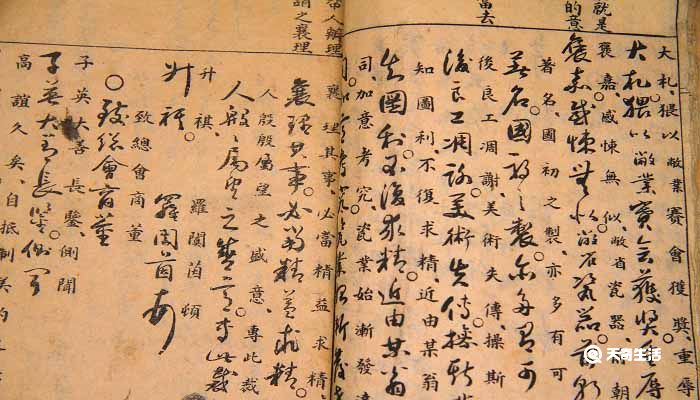 就是
的意
當去
大札。猥以敝業賽會獲奬。重辱
大札。猥以敝業賽會獲奬重辱
褒嘉。感悚無似。敝省瓷器。前朝
褒嘉感悚無似。敝省瓷器。前朝
著名。國初之製。亦多有可
著名國初之製。亦多有可
後良工凋謝。美術失傳。操斯
後良工凋謝。美術失傳。操斯
知圖利。不復求精。近由某翁
知圖利。不復求精。近由某翁
司。加意考究。瓷業始漸發達
帝人辦理
謂之襄理
襄理其事。必當精益求精
襄理其事。必當精益求精
人殷殷屬望之盛意。專此裁
人殷殷屬望之盛意。專此裁
升祺 羅闓茵頓
升祺 羅闓茵頓
致總會商董
致總會商董
子英大善長鑒側聞
子英大善長鑒側聞
高誼久矣。自抵制美約
天奇生活